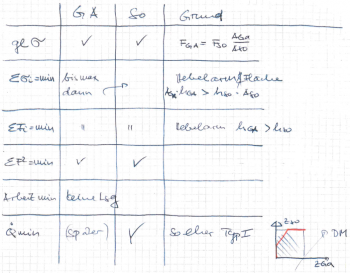 GA So Grund
gl σ ✓ ✓ F_GA = F_So A_Ga / A_So
Σσi=min bis max dann Hebelarm/Fläche
h_GA > h_So · A_So
ΣFi=min " " Hebelarm h_GA > h_So
ΣF²=min ✓ ✓
Arbeit min keine Lsg
Q̇ min (später) ✓ So eher Typ I
Z_So
DM
Z_Ga